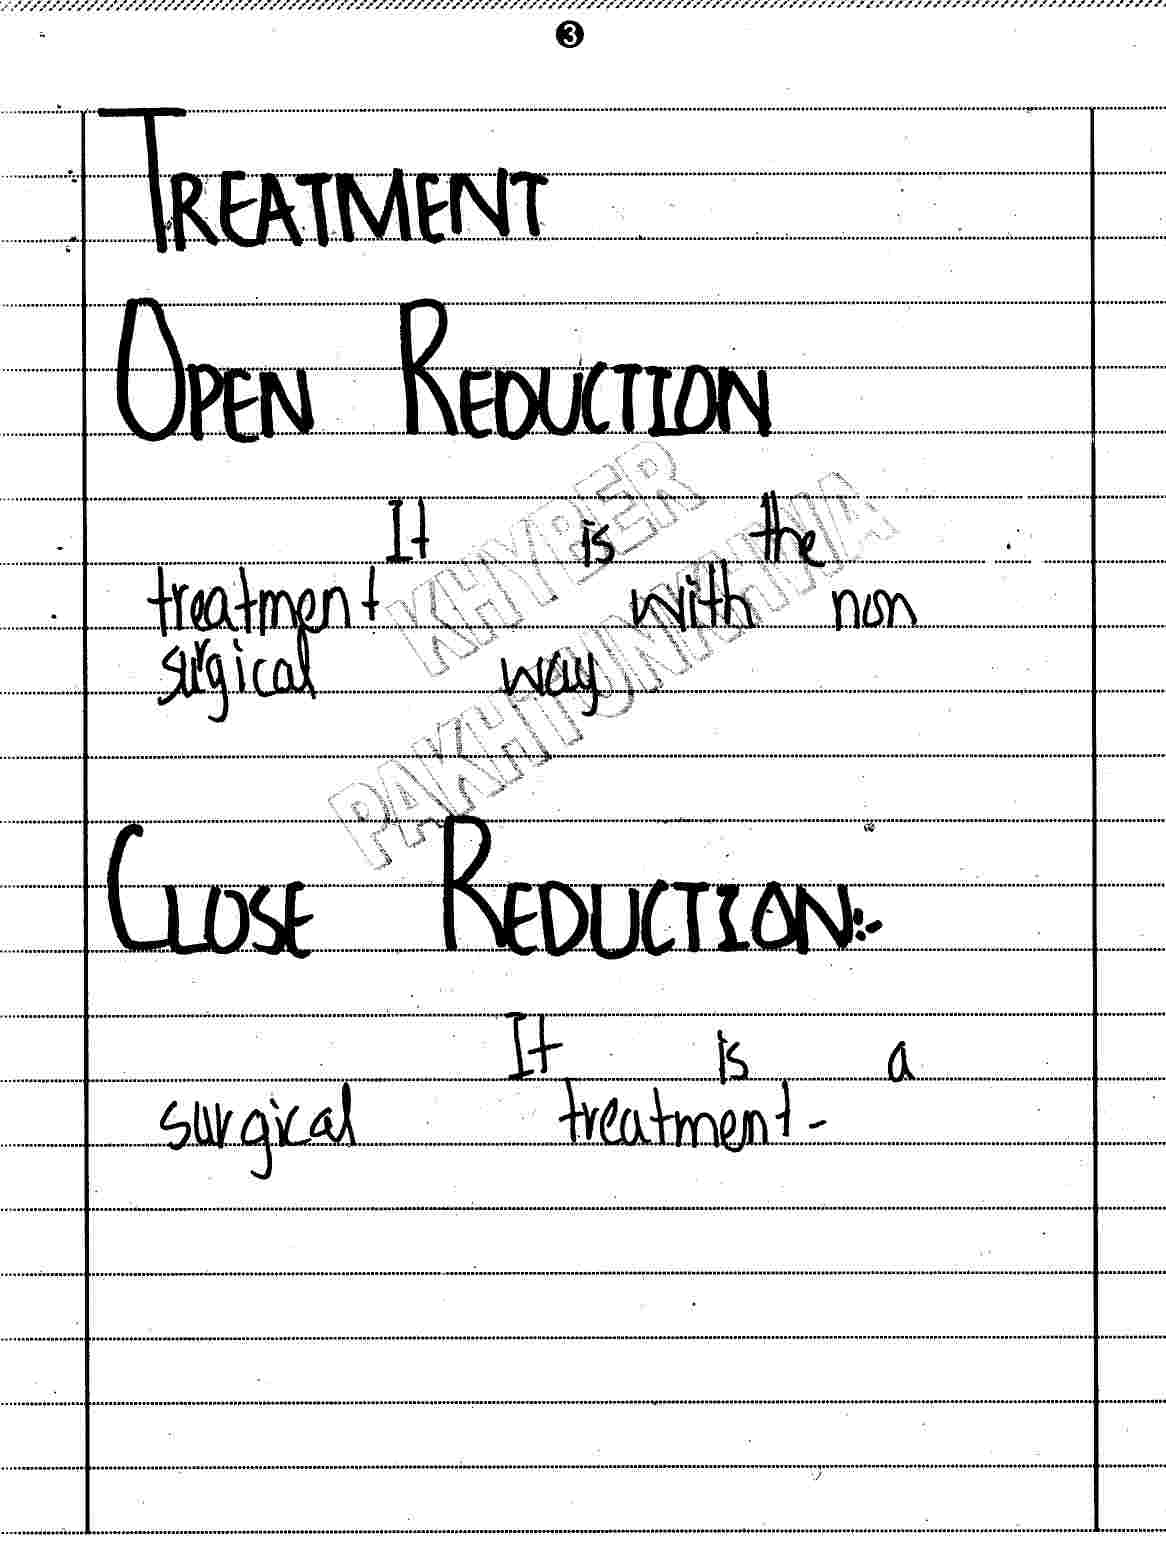 3
TREATMENT
OPEN REDUCTION
It is the
treatment with non
surgical way
KHYBER
PAKHTUNKHWA
CLOSE REDUCTION:-
It is a
surgical treatment-